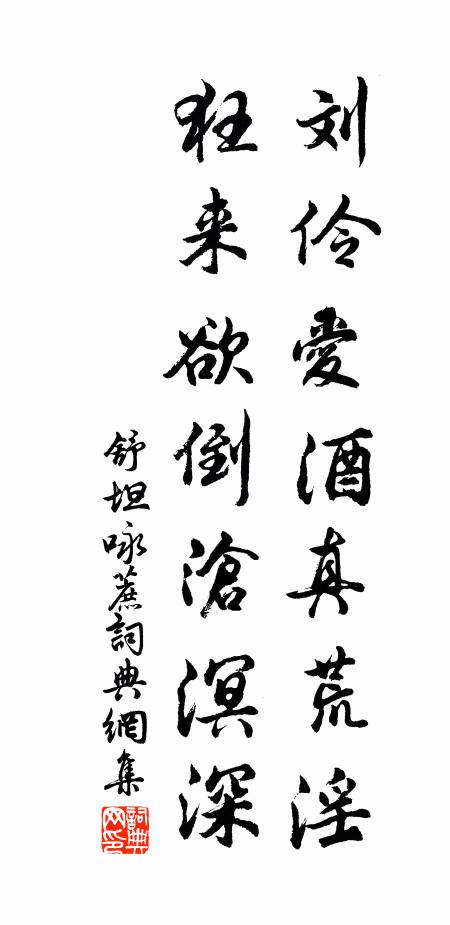 刘伶愛酒真荒淫
狂来欲倒滄溟深
舒坦咏蔗詞典網集
詞典
网印